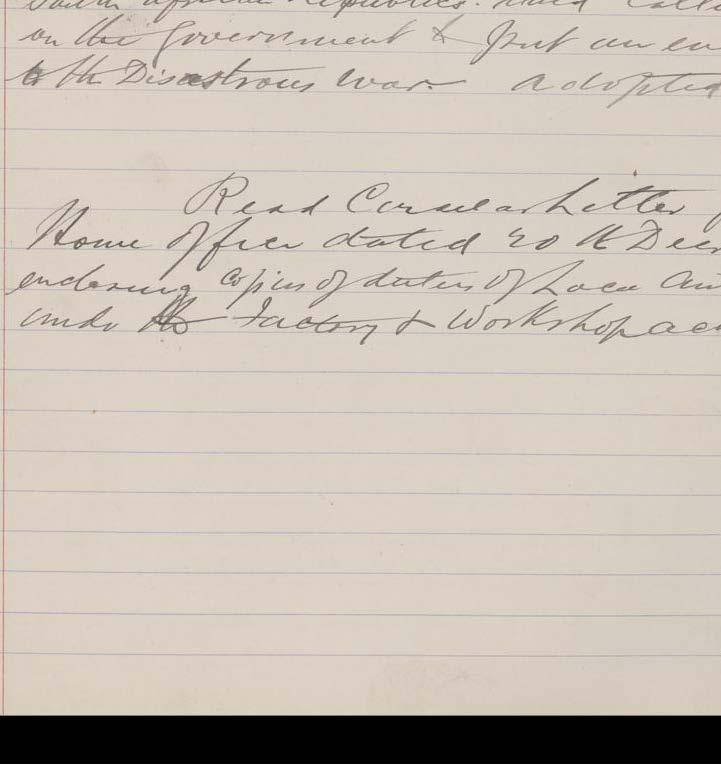 South African Republics. and call
on the Government to put an en
to the Disastrous War. Adopted
Read Circular Letter
Home Office dated 20th Decr
enclosing copies of duties of Local Au
under the Factory & Workshop Act